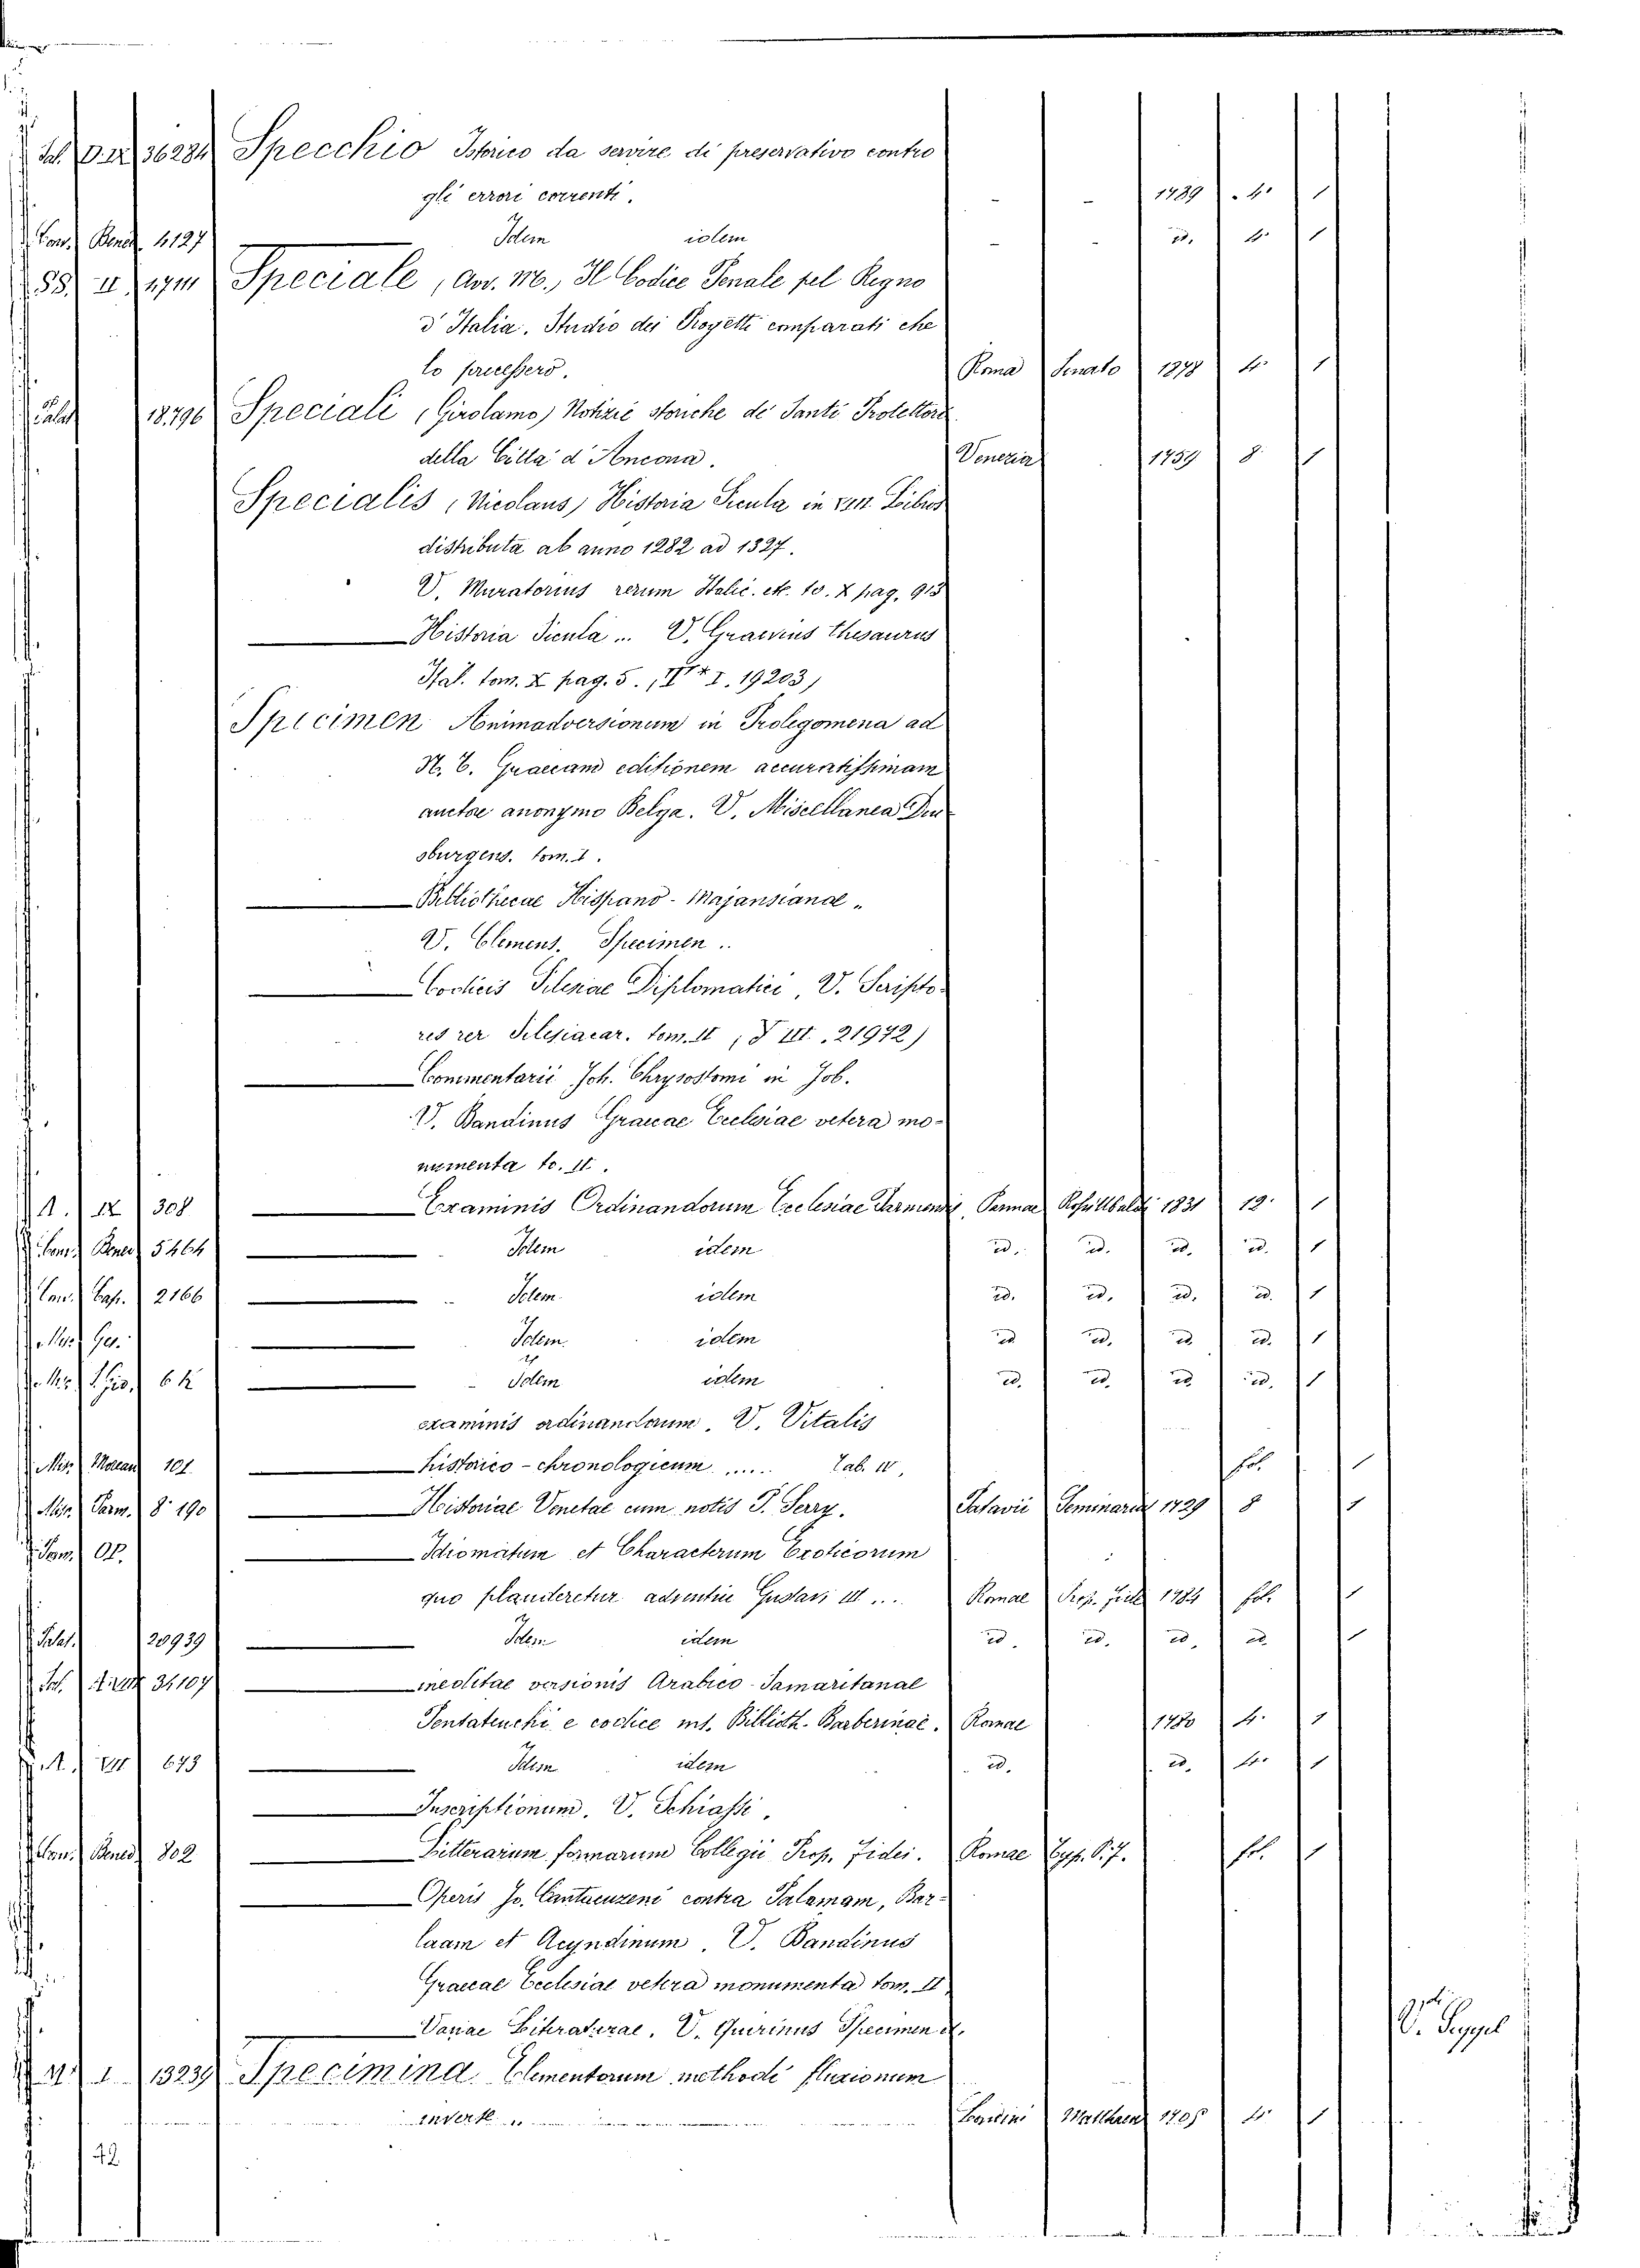 36284 Specchio Istorico da servire di preservativo contro
gli errori correnti. - - 1789 4° 1
Bened. 4127 Idem idem - - id. 4° 1
Speciale, Av. M°., Il Codice Penale pel Regno
d'Italia. Studio dei Progetti comparati che
lo precessero. Roma Senato 1878 4° 1
18796 Speciali (Girolamo) Notizie storiche de Santi Protettori
della Città d'Ancona. Venezia 1759 8° 1
Specialis (Nicolaus) Historia Sicula in VIII. Libros
distributa ab anno 1282 ad 1327.
V. Muratorius rerum Italic. etc. to. X pag. 913
Historia Sicula ... V. Graevius thesaurus
Ital. tom. X pag. 5. 19203)
Specimen Animadversionum in Prolegomena ad
N. T. Graecam editionem accuratissimam
auctore anonymo Belga. V. Miscellanea Dui
sburgens. tom. 1.
Bibliothecae Hispano-Majansianae
V. Clemens. Specimen ..
Codicis Silesiae Diplomatici, V. Scripto
res rer Silesiacar. tom. II 21972)
Commentarii Joh. Chrysostomi in Job.
V. Bandinus Graecae Ecclesiae vetera mo-
numenta to. II.
A. IX 308 Examinis Ordinandorum Ecclesiae Parmensis, Parmae 1831 12° 1
Bened. 5464 Idem idem id. id. id. id. 1
Cap. 2166 Idem idem id. id. id. id. 1
Idem idem id. id. id. id. 1
Idem idem id. id. id. id. 1
examinis ordinandorum. V. Vitalis
101 historico-chronologicum ..... Tab. IV, fol. 1
Misc. Parm. 8° 190 Historiae Venetae cum notis P. Serry. Patavii Seminarii 1729 8 1
Idiomatum et Characterum Exoticorum
quo plauderetur adventui Gustavi III ... Romae Prop. Fide 1784 fol. 1
20939 Idem idem id. id. id. id. 1
34107 ineditae versionis Arabico-Samaritanae
Pentateuchi e codice ms. Biblioth. Barberinae. Romae 1780 4° 1
673 Idem idem id. id. 4° 1
Inscriptionum. V. Schiassi.
Bened. 802 Litterarum formarum Collegii Prop. Fidei. Romae Typ. P. F. fol. 1
Operis Jo. Cantacuzeni contra Palamam, Bar-
laam et Acyndinum. V. Bandinus
Graecae Ecclesiae vetera monumenta tom. II
Variae Literaturae. V. Quirinus Specimen
13239 Specimina Elementorum methodi fluxionum
invers. Londini 1705 4° 1
42